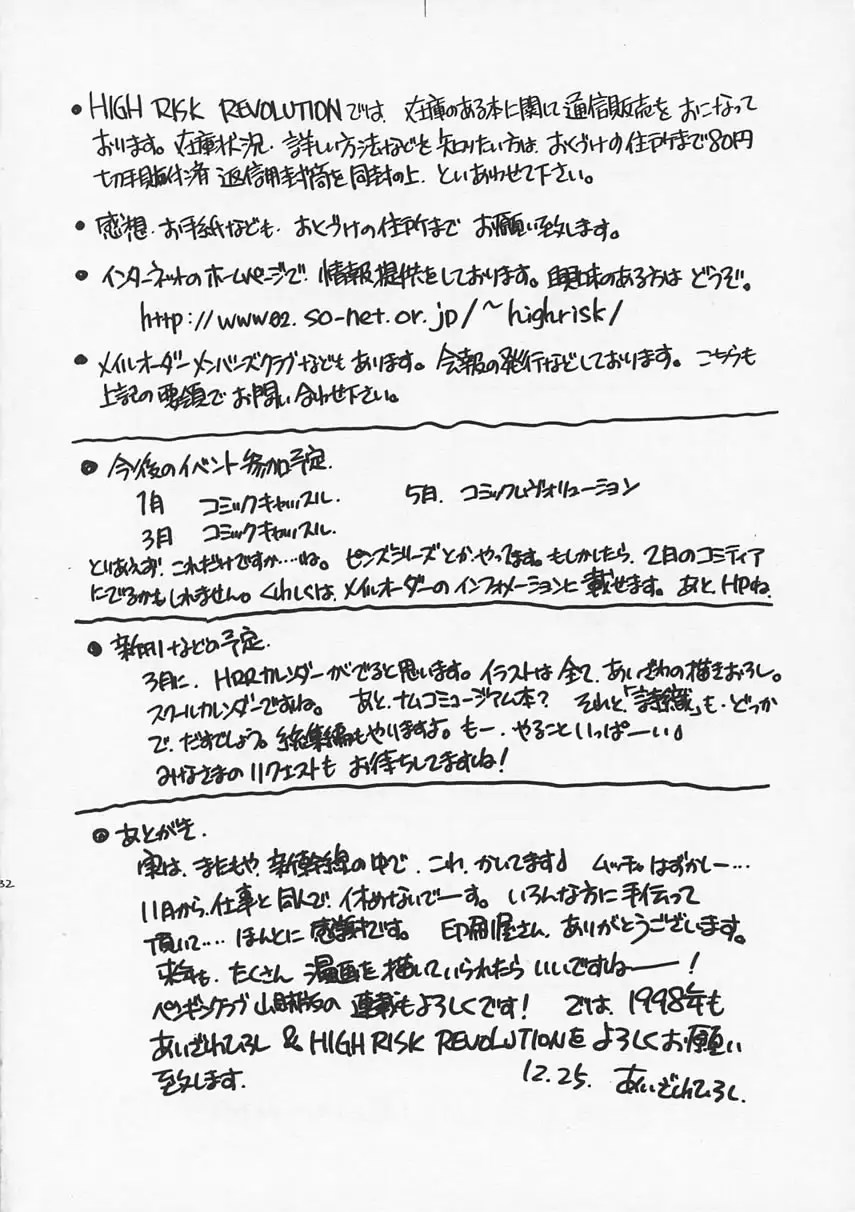 ● HIGH RISK REVOLUTIONでは、在庫のある本に関して通信販売をおこなって
おります。在庫状況、詳しい方法などを知りたい方は、おくづけの住所まで80円
切手貼付済 返信用封筒を同封の上、といあわせて下さい。
● 感想・お手紙なども、おくづけの住所まで お願い致します。
● インターネットのホームページで、情報提供をしております。興味のある方は どうぞ。
http://www02.so-net.or.jp/~highrisk/
● メイルオーダーメンバーズクラブなどもあります。会報の発行などしております。こちらも
上記の要領でお問い合わせ下さい。
● 今後のイベント参加予定.
1月 コミックキャッスル. 5月. コミックレヴォリューション
3月 コミックキャッスル.
とりあえず、これだけですか……ね。ピンズシリーズとか、やってます。もしかしたら、2月のコミティア
にでるかもしれません。くわしくは、メイルオーダーのインフォメーションに載せます。あと、HPね.
● 新刊などの予定.
3月に、HRRカレンダーがでると思います。イラストは全て、あいざわの描きおろし。
スクールカレンダーですね。 あと、ナムコミュージアム本? それと、「詩織」も、どっか
で、だすでしょう。総集編もやりますよ。もー、やることいっぱーい♪
みなさまのリクエストも お待ちしてますね!
● あとがき.
実は、またもや、新幹線の中で、これ、かいてます♪ ムッチャはずかしー…
11月から、仕事と同人で、休めないでーす。いろんな方に手伝って
頂いて…… ほんとに感謝です。 印刷屋さん、ありがとうございます。
来年も、たくさん 漫画を描いていられたら いいですねー!
ペンギンクラブ山賊版の連載もよろしくです! では、1998年も
あいざわひろし & HIGH RISK REVOLUTIONを よろしくお願い
致します.
12.25. あいざわひろし.
32